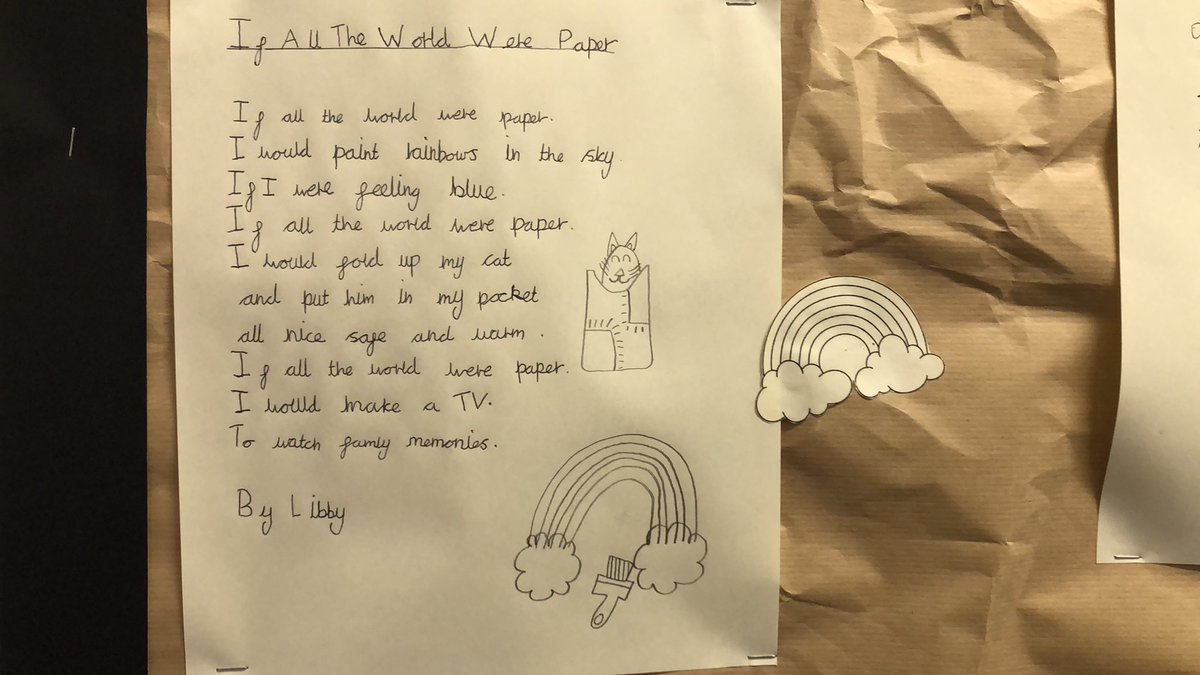 If All The World Were Paper
If all the world were paper.
I would paint rainbows in the sky.
If I were feeling blue.
If all the world were paper.
I would fold up my cat
and put him in my pocket
all nice safe and warm.
If all the world were paper.
I would make a TV.
To watch famly memories.
By Libby